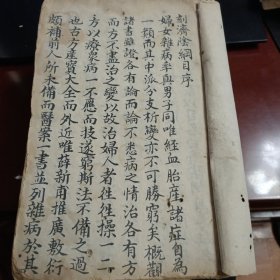 刻濟陰綱目序
婦女雜病率與男子同唯經血胎産諸症自為
一類而其中派分支析變亦不可勝窮矣概觀
諸書雖證各有論而論不悉病之情治各有方
而方不盡治之變以故治婦人者徃徃操一二
方以療衆病一不應而技遂窮斯法不備之過
也古方産寶大全而外近唯薛新甫推廣敷衍
頗補前人所未備而醫案一書並列雜病於其